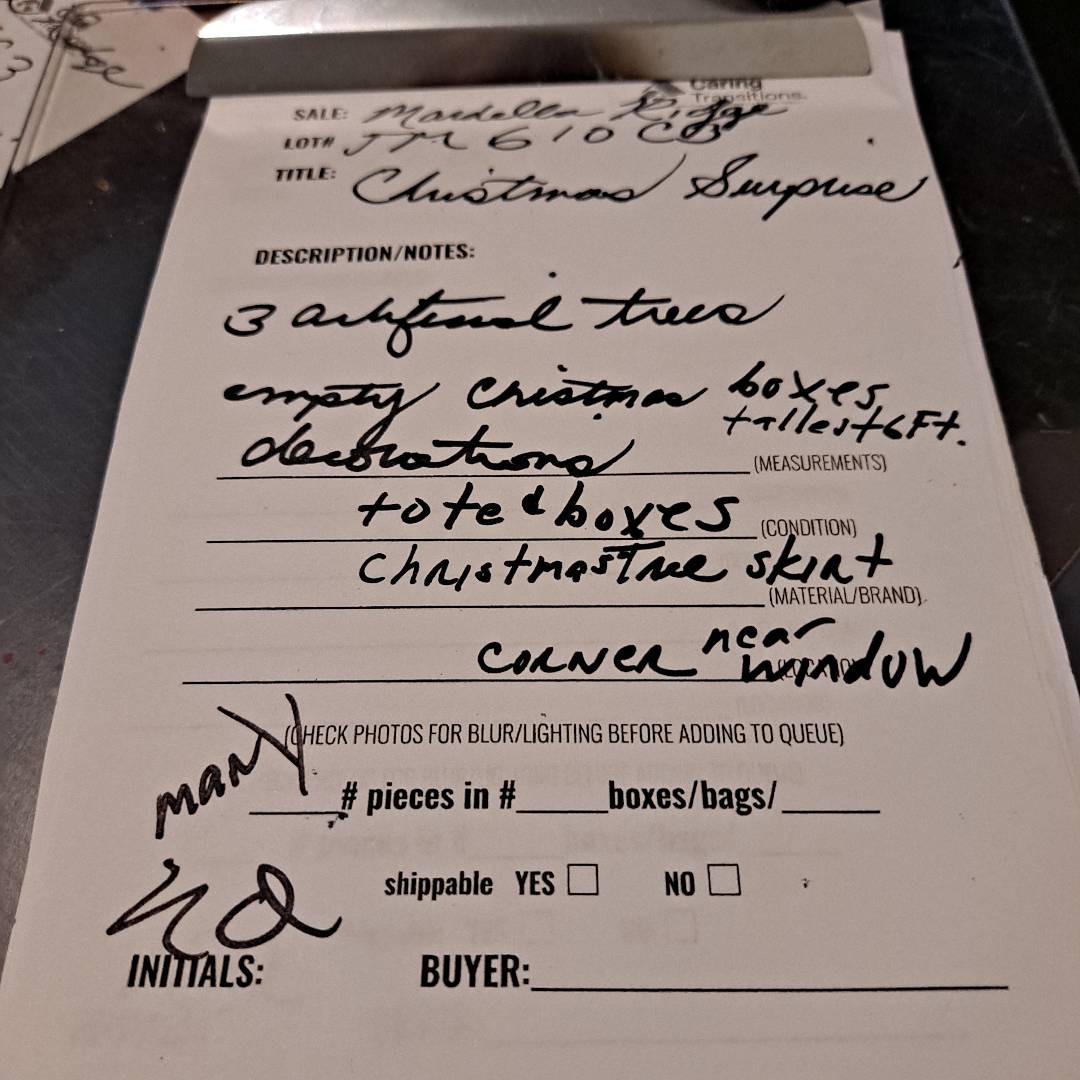 Caring
Transitions.
SALE: Mardella Riggs
LOT# JM 610 CB
TITLE: Christmas Surprise
DESCRIPTION/NOTES:
3 artificial trees
empty Christmas boxes
tallest 6 Ft.
decorations (MEASUREMENTS)
tote & boxes (CONDITION)
Christmas Tree skirt
(MATERIAL/BRAND)
CORNER near
window
(CHECK PHOTOS FOR BLUR/LIGHTING BEFORE ADDING TO QUEUE)
many # pieces in # boxes/bags/
shippable YES NO
INITIALS: BUYER: